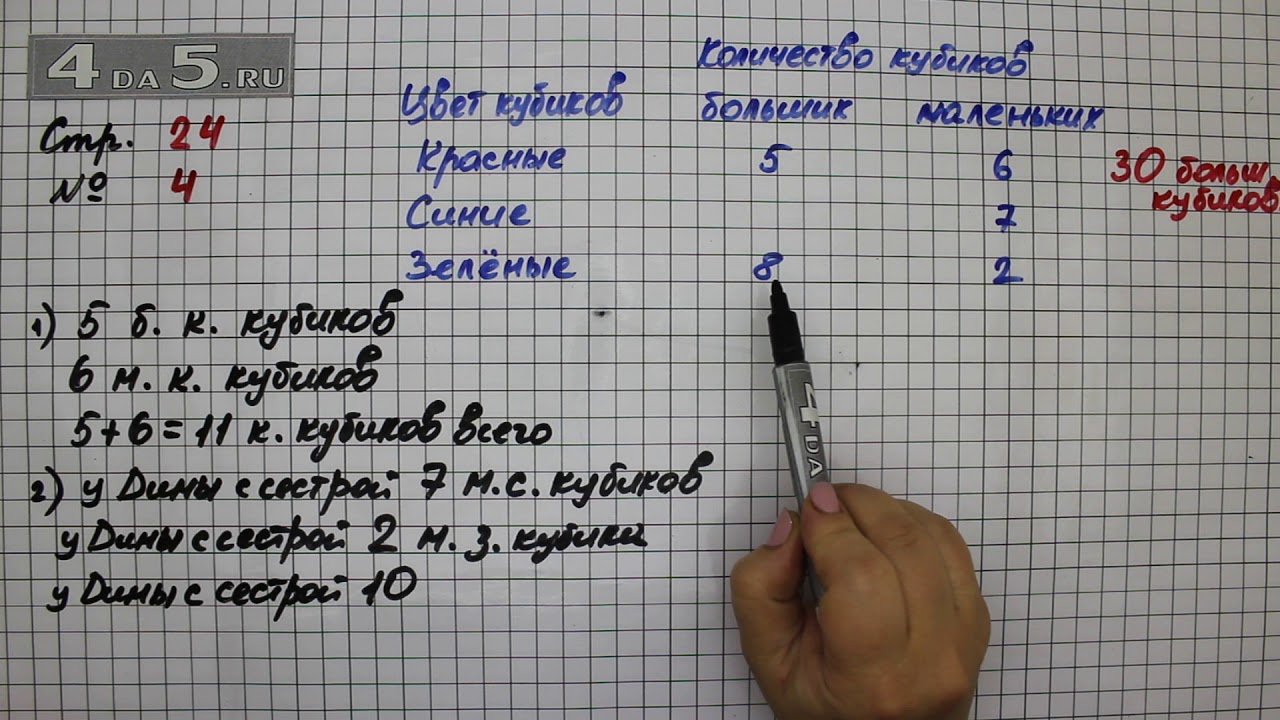 4 DA 5.RU
Стр. 24
№ 4
Количество кубиков
Цвет кубиков больших маленьких
Красные 5 6
Синие 7
Зелёные 8 2
30 больш.
кубиков
1) 5 б. к. кубиков
6 м. к. кубиков
5+6=11 к. кубиков всего
2) у Дины с сестрой 7 м.с. кубиков
у Дины с сестрой 2 м. з. кубика
у Дины с сестрой 10
4 DA